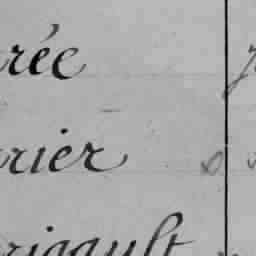 rée
rier
rigault